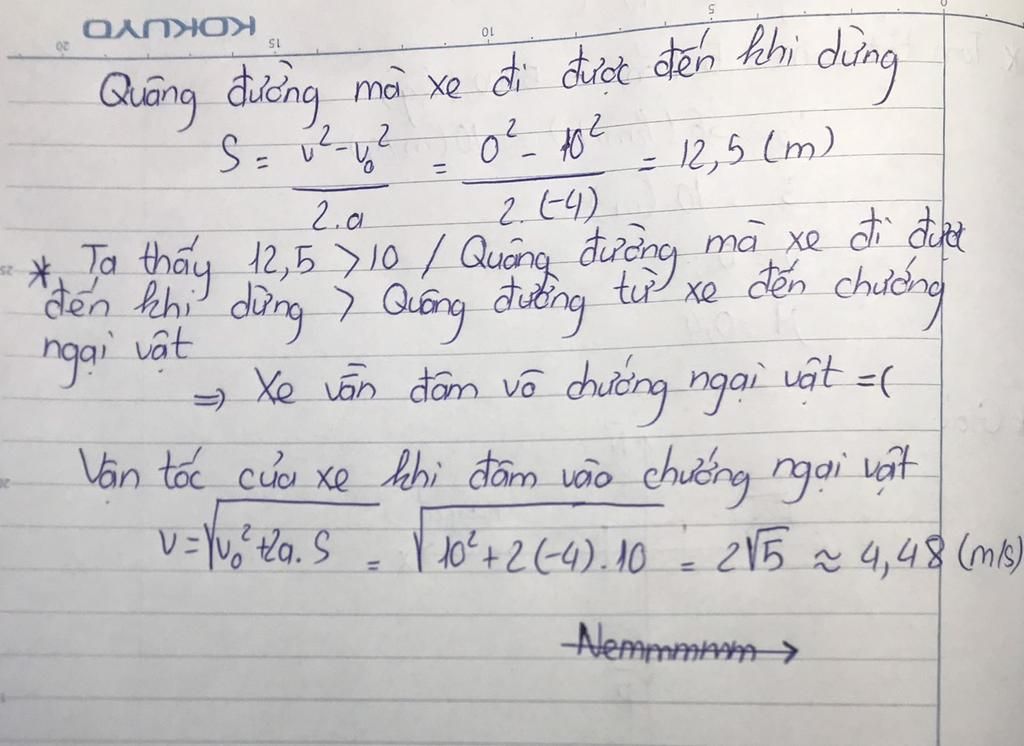 KOKUYO
20 15 10 5 0
Quãng đường mà xe đi được đến khi dừng
S = (v² - v₀²) / (2.a) = (0² - 10²) / (2.(-4)) = 12,5 (m)
* Ta thấy 12,5 > 10 / Quãng đường mà xe đi được
đến khi dừng > Quãng đường từ xe đến chướng
ngại vật
⇒ Xe vẫn đâm vô chướng ngại vật =(
Vận tốc của xe khi đâm vào chướng ngại vật
v = √(v₀² + 2a.S) = √(10² + 2(-4).10) = 2√5 ≈ 4,48 (m/s)
Nemmmmm →